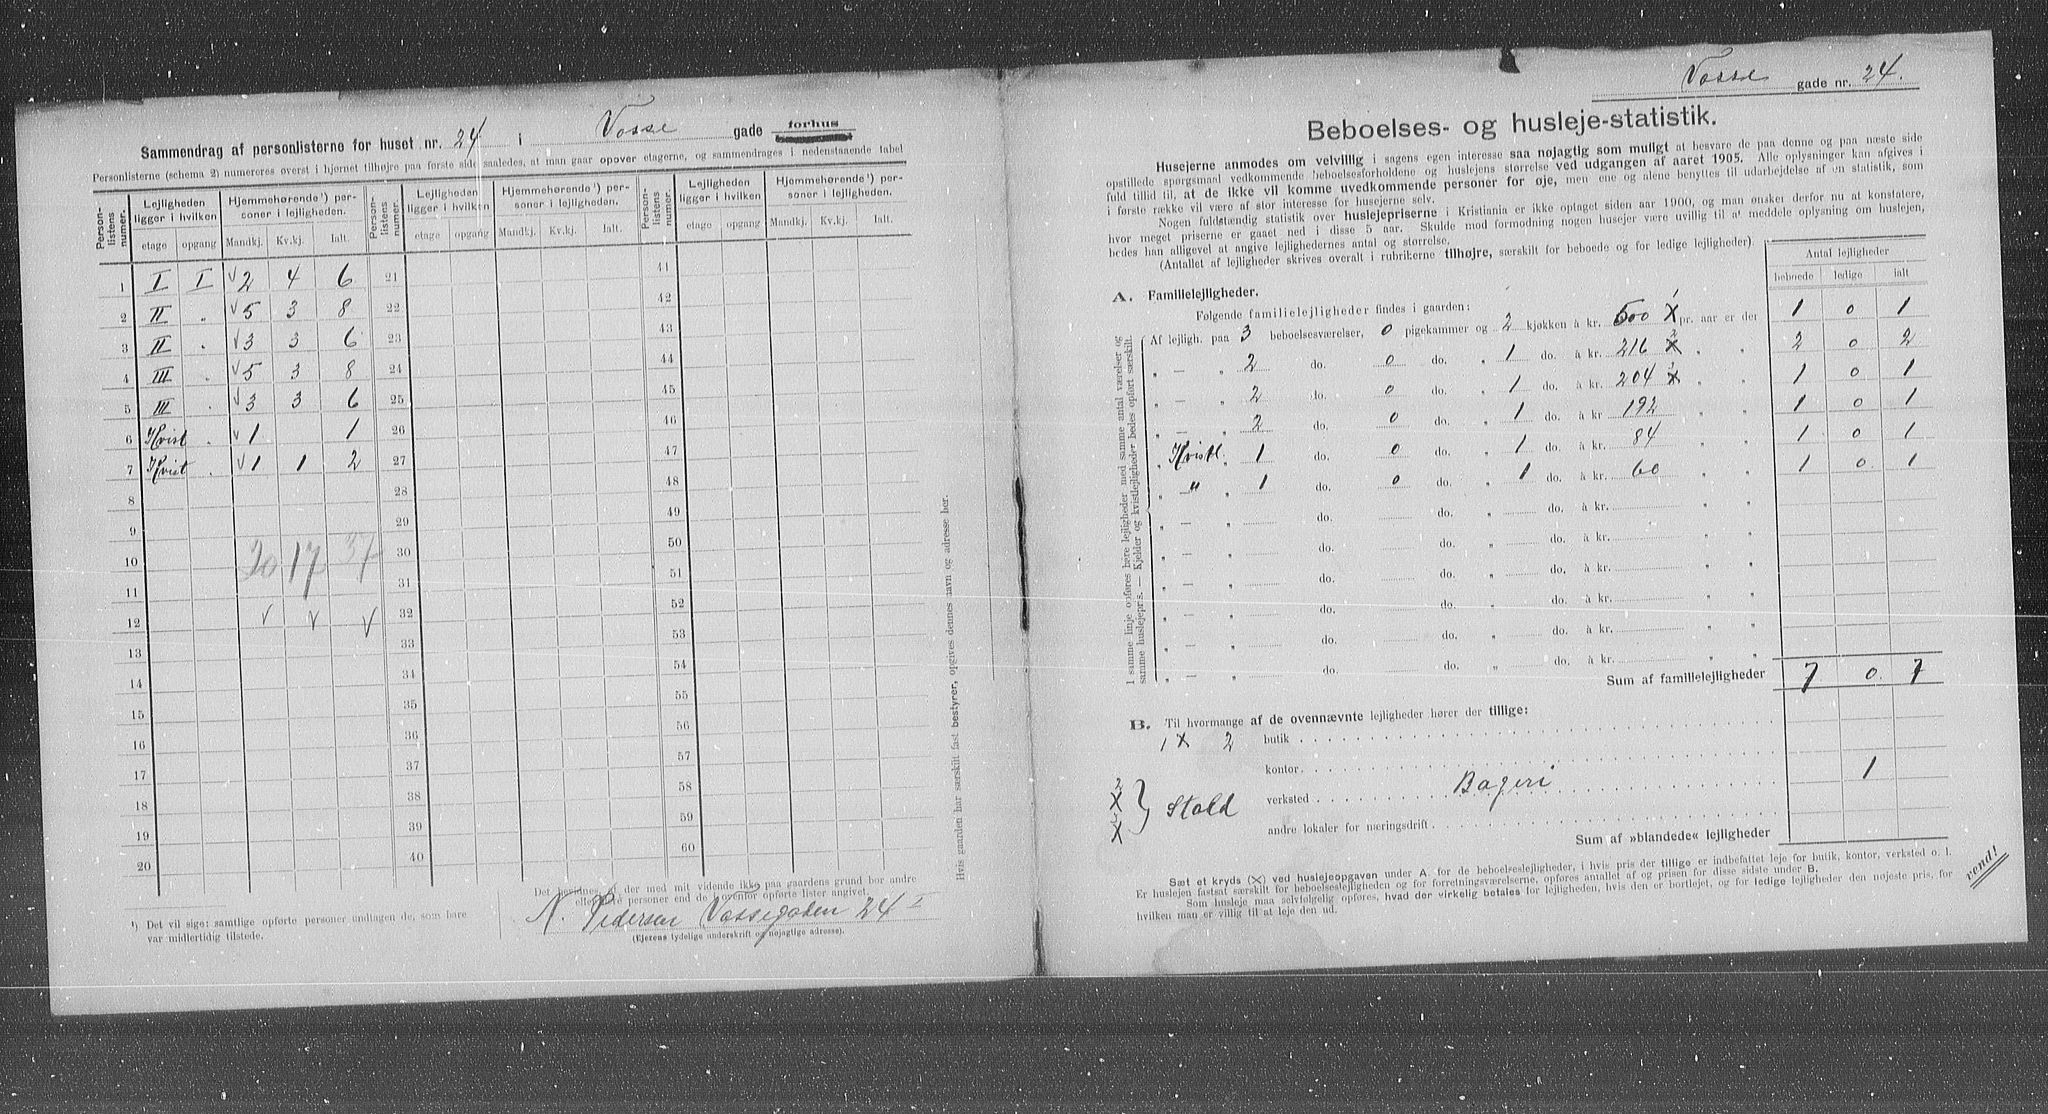 Sammendrag af personlisterne for huset nr. 24 i Vosse gade forhus
Personlisterne (schema 2) numereres øverst i hjørnet tilhøjre paa første side saaledes, at man gaar opover etagerne, og sammendrages i nedenstaaende tabel
Person-listens numer. Lejligheden ligger i hvilken Hjemmehørende¹) personer i lejligheden. Person-listens numer. Lejligheden ligger i hvilken Hjemmehørende¹) personer i lejligheden. Person-listens numer. Lejligheden ligger i hvilken Hjemmehørende¹) personer i lejligheden.
etage opgang Mandkj. Kv.kj. Ialt. etage opgang Mandkj. Kv.kj. Ialt. etage opgang Mandkj. Kv.kj. Ialt.
1 I I √2 4 6 21 41
2 II " √5 3 8 22 42
3 II " √3 3 6 23 43
4 III " √5 3 8 24 44
5 III " √3 3 6 25 45
6 Kvist " √1 1 26 46
7 Kvist " √1 1 2 27 47
8 28 48
9 29 49
10 20 17 37 30 50
11 31 51
12 √ √ √ 32 52
13 33 53
14 34 54
15 35 55
16 36 56
17 37 57
18 38 58
19 39 59
20 40 60
Hvis gaarden har særskilt fast bestyrer, opgives dennes navn og adresse her.
Det bevidnes, at der med mit vidende ikke paa gaardens grund bor andre
eller flere personer end de i ovenfor opførte lister angivet.
N. Pedersen Vossegaden 24 I
(Ejerens tydelige underskrift og nøjagtige adresse).
¹) Det vil sige: samtlige opførte personer undtagen de, som bare
var midlertidig tilstede.
Vosse gade nr. 24.
Beboelses- og husleje-statistik.
Husejerne anmodes om velvillig i sagens egen interesse saa nøjagtig som muligt at besvare de paa denne og paa næste side
opstillede spørgsmaal vedkommende beboelsesforholdene og huslejens størrelse ved udgangen af aaret 1905. Alle oplysninger kan afgives i
fuld tillid til, at de ikke vil komme uvedkommende personer for øje, men ene og alene benyttes til udarbejdelse af en statistik, som
i første række vil være af stor interesse for husejerne selv.
Nogen fuldstændig statistik over huslejepriserne i Kristiania er ikke optaget siden aar 1900, og man ønsker derfor nu at konstatere,
hvor meget priserne er gaaet ned i disse 5 aar. Skulde mod formodning nogen husejer være uvillig til at meddele oplysning om huslejen,
bedes han alligevel at angive lejlighedernes antal og størrelse.
(Antallet af lejligheder skrives overalt i rubrikerne tilhøjre, særskilt for beboede og for ledige lejligheder).
Antal lejligheder
beboede ledige ialt
A. Familielejligheder.
Følgende familielejligheder findes i gaarden:
I samme linje opføres flere lejligheder med samme antal værelser og samme huslejepris. — Kjelder og kvistlejligheder bedes opført særskilt.
Af lejligh. paa 3 beboelsesværelser, 0 pigekammer og 2 kjøkken à kr. 500 X 1 pr. aar er der 1 0 1
" — " 2 do. 0 do. " 1 do. à kr. 216 X 2 " " 2 0 2
" — " 2 do. 0 do. " 1 do. à kr. 204 X 1 " " 1 0 1
" — " 2 0 do. " 1 do. à kr 192 " " 1 0 1
" Kvistl. " 1 do. 0 do. " 1 do. à kr. 84 " " 1 0 1
" " " 1 do. 0 do. " 1 do. à kr. 60 " " 1 0 1
" — " do. do. " do. à kr. " "
" — " do. do. " do. à kr. " "
" — " do. do. " do. à kr. " "
" — " do. do. " do. à kr. " "
" — " do. do. " do. à kr. " "
" — " do. do. " do. à kr. " "
Sum af familielejligheder 7 0 7
B. Til hvormange af de ovennævnte lejligheder hører der tillige:
1 X 2 butik
kontor
2 X X } Stald verksted Bageri 1
andre lokaler for næringsdrift
Sum af »blandede« lejligheder
Sæt et kryds (X) ved huslejeopgaven under A. for de beboelseslejligheder, i hvis pris der tillige er indbefattet leje for butik, kontor, verksted o. l.
Er huslejen fastsat særskilt for beboelseslejligheden og for forretningsværelserne, opføres antallet af og prisen for disse sidste under B.
Som husleje maa selvfølgelig opføres, hvad der virkelig betales for lejligheden, hvis den er bortlejet, og for ledige lejligheder den nøjeste pris, for
hvilken man er villig til at leje den ud.
vend!